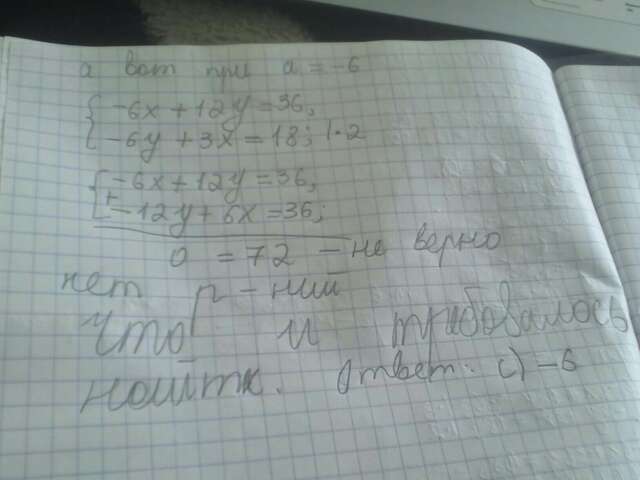 а вот при a = -6
{ -6x + 12y = 36,
-6y + 3x = 18; | · 2
{ -6x + 12y = 36,
+ -12y + 6x = 36;
0 = 72 - не верно
нет р-ний
Что и требовалось
найти. Ответ: c) -6